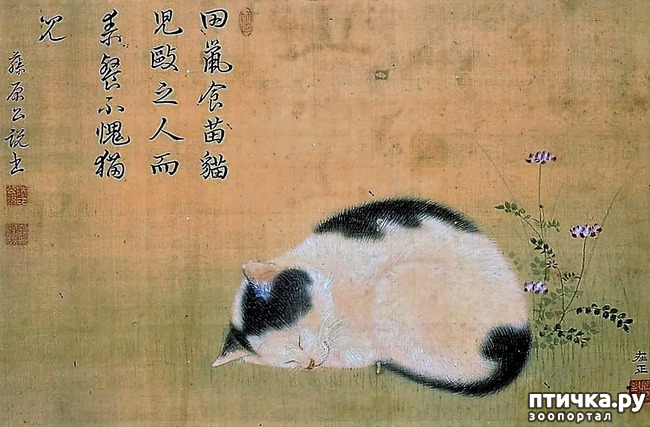 田鼠食苗貓
児毆之人而
素餐不愧猫
児
藤原公説書
在正
птичка.ру
зоопортал